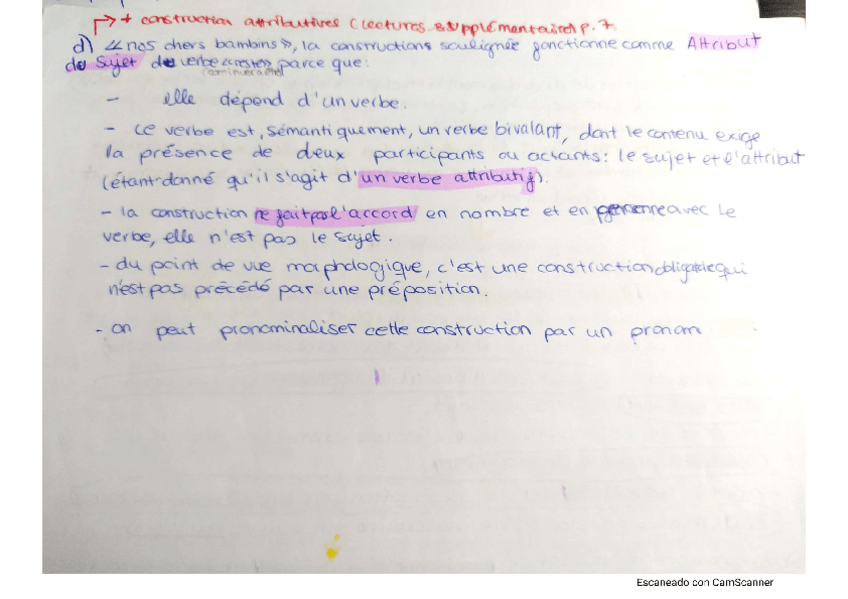 + construction attributives (Lectures supplémentaires) p. 7
d) « nos chers bambins », la constructions soulignée fonctionne comme Attribut
du Sujet du verbe parce que:
- elle dépend d'un verbe.
- ce verbe est, sémantiquement, un verbe bivalant, dont le contenu exige
la présence de deux participants ou actants: le sujet et l'attribut
(étant donné qu'il s'agit d'un verbe attributif).
- la construction ne fait pas l'accord en nombre et en personne avec le
verbe, elle n'est pas le sujet.
- du point de vue morphologique, c'est une construction obligatoire qui
n'est pas précédé par une préposition.
- on peut pronominaliser cette construction par un pronom
Escaneado con CamScanner